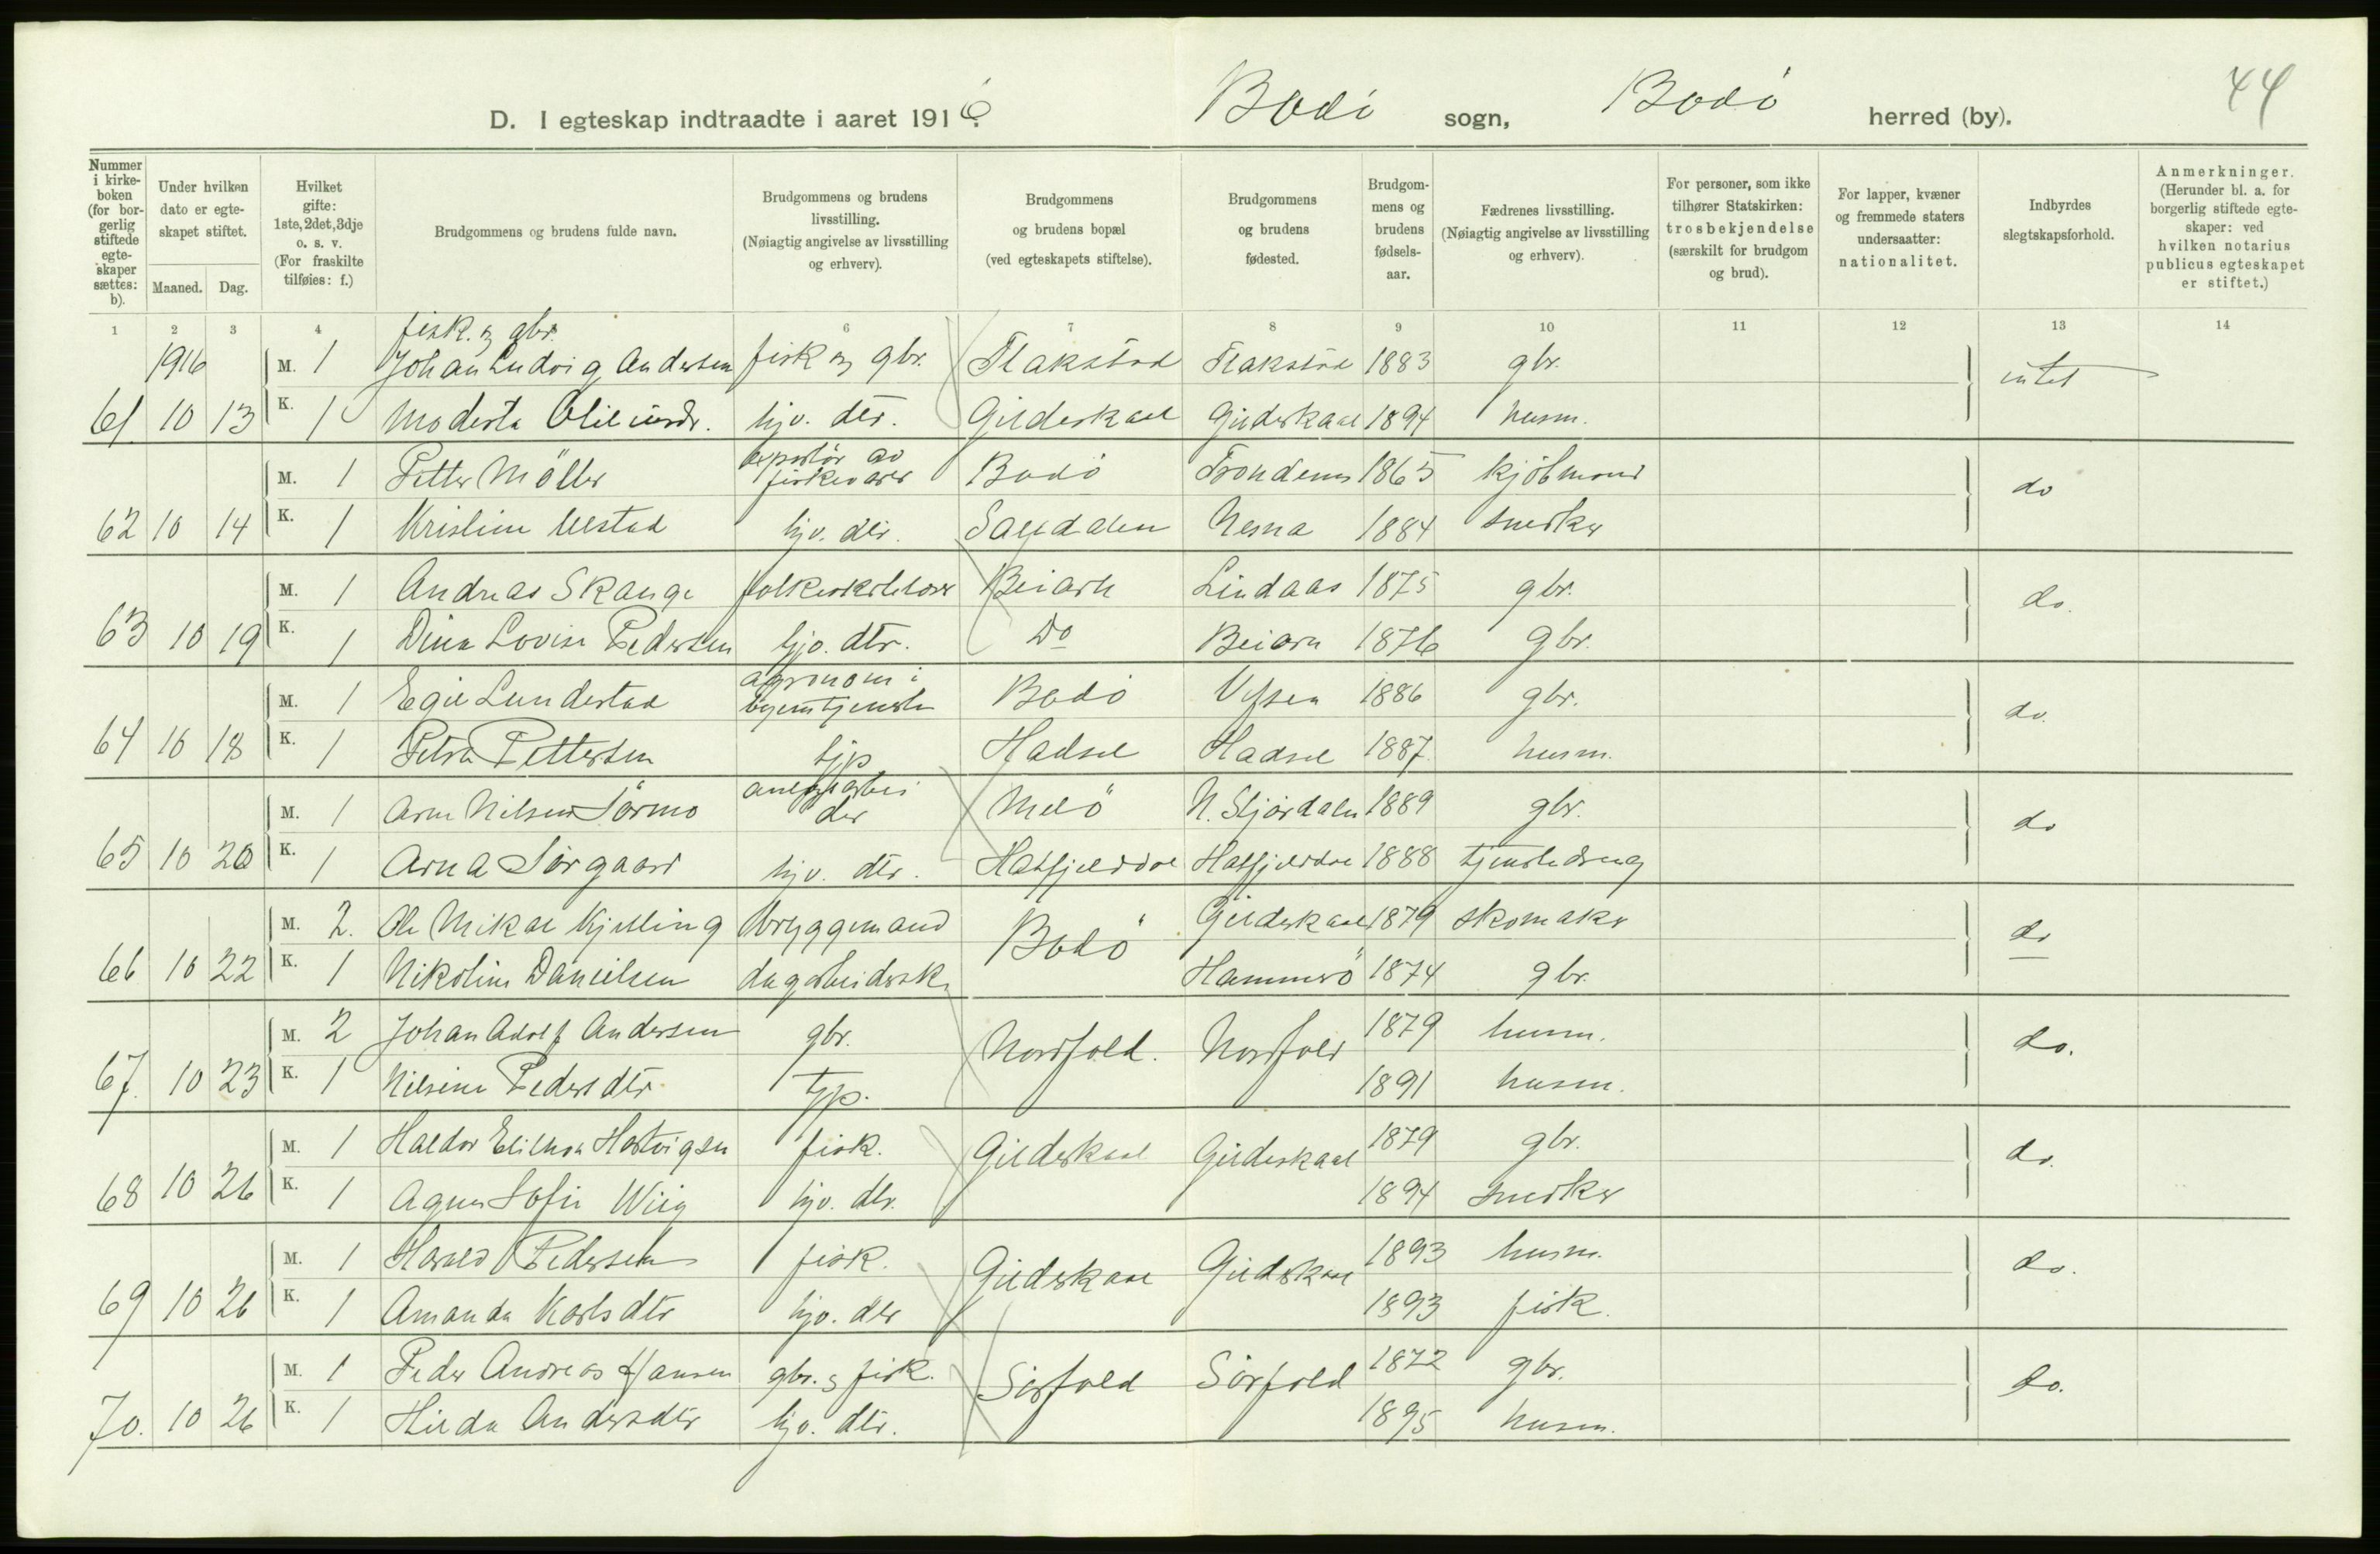 44
D. I egteskap indtraadte i aaret 1916. Bodö sogn, Bodö herred (by).
Nummer i kirkeboken (for borgerlig stiftede egteskaper sættes: b).
Under hvilken dato er egteskapet stiftet.
Maaned. Dag.
Hvilket gifte: 1ste, 2det, 3dje o. s. v. (For fraskilte tilføies: f.)
Brudgommens og brudens fulde navn.
Brudgommens og brudens livsstilling. (Nøiagtig angivelse av livsstilling og erhverv).
Brudgommens og brudens bopæl (ved egteskapets stiftelse).
Brudgommens og brudens fødested.
Brudgommens og brudens fødselsaar.
Fædrenes livsstilling. (Nøiagtig angivelse av livsstilling og erhverv).
For personer, som ikke tilhører Statskirken: trosbekjendelse (særskilt for brudgom og brud).
For lapper, kvæner og fremmede staters undersaatter: nationalitet.
Indbyrdes slegtskapsforhold.
Anmerkninger. (Herunder bl. a. for borgerlig stiftede egteskaper: ved hvilken notarius publicus egteskapet er stiftet.)
1 2 3 4 6 7 8 9 10 11 12 13 14
fisk. og gbr.
1916 M. 1 Johan Ludvig Andersen fisk og gbr. Flakstad Flakstad 1883 gbr. intet
61 10 13 K. 1 Modesta gjv. dtr. Gildeskaal Gildeskaal 1894 husm.
M. 1 Petter Möller exportör av fiskevarer Bodö Trondenes 1865 kjöbmand do
62 10 14 K. 1 Kristine hjv. dtr. Nesna 1884 snedker
M. 1 Andreas Skauge folkeskolelærer Beiarn Lindaas 1875 gbr. do.
63 10 19 K. 1 Dina Lovise Pedersen hjv. dtr. Do Beiarn 1876 gbr.
M. 1 Egil Lundestad agronom i Bodö 1886 gbr. do.
64 10 18 K. 1 Petra Pettersen tjp Hadsel Hadsel 1887 husm.
M. 1 Arne Nilsen Sörmo anlægsarbeider Melö N. Stjördalen 1889 gbr. do
65 10 20 K. 1 Arna Sörgaard hjv. dtr. Hatfjelddal Hatfjelddal 1888 tjenestedreng
M. 2. Ole Mikal Kjelling bryggemand Bodö Gildeskaal 1879 skomaker do
66 10 22 K. 1 Nikoline Danielsen dagarbeidersk. Hammerö 1874 gbr.
M. 2 Johan Adolf Andersen gbr. Nordfold. Nordfold 1879 husm. do.
67. 10 23 K. 1 Nilsine Pedersdtr tjp. 1891 husm.
M. 1 Haldor Hartvigsen fisk. Gildeskaal Gildeskaal 1879 gbr. do.
68 10 26 K. 1 Agnes Sofie Wiig hjv. dtr. 1894 snedker
M. 1 Harald Pedersen fisk. Gildeskaal Gildeskaal 1893 husm. do.
69 10 26 K. 1 Amanda Karlsdtr hjv. dtr 1893 fisk.
M. 1 Peder Andreas Hansen gbr. og fisk. Sörfold Sörfold 1872 gbr. do.
70. 10 26 K. 1 Hilda Andersdtr hjv. dtr. 1895 husm.